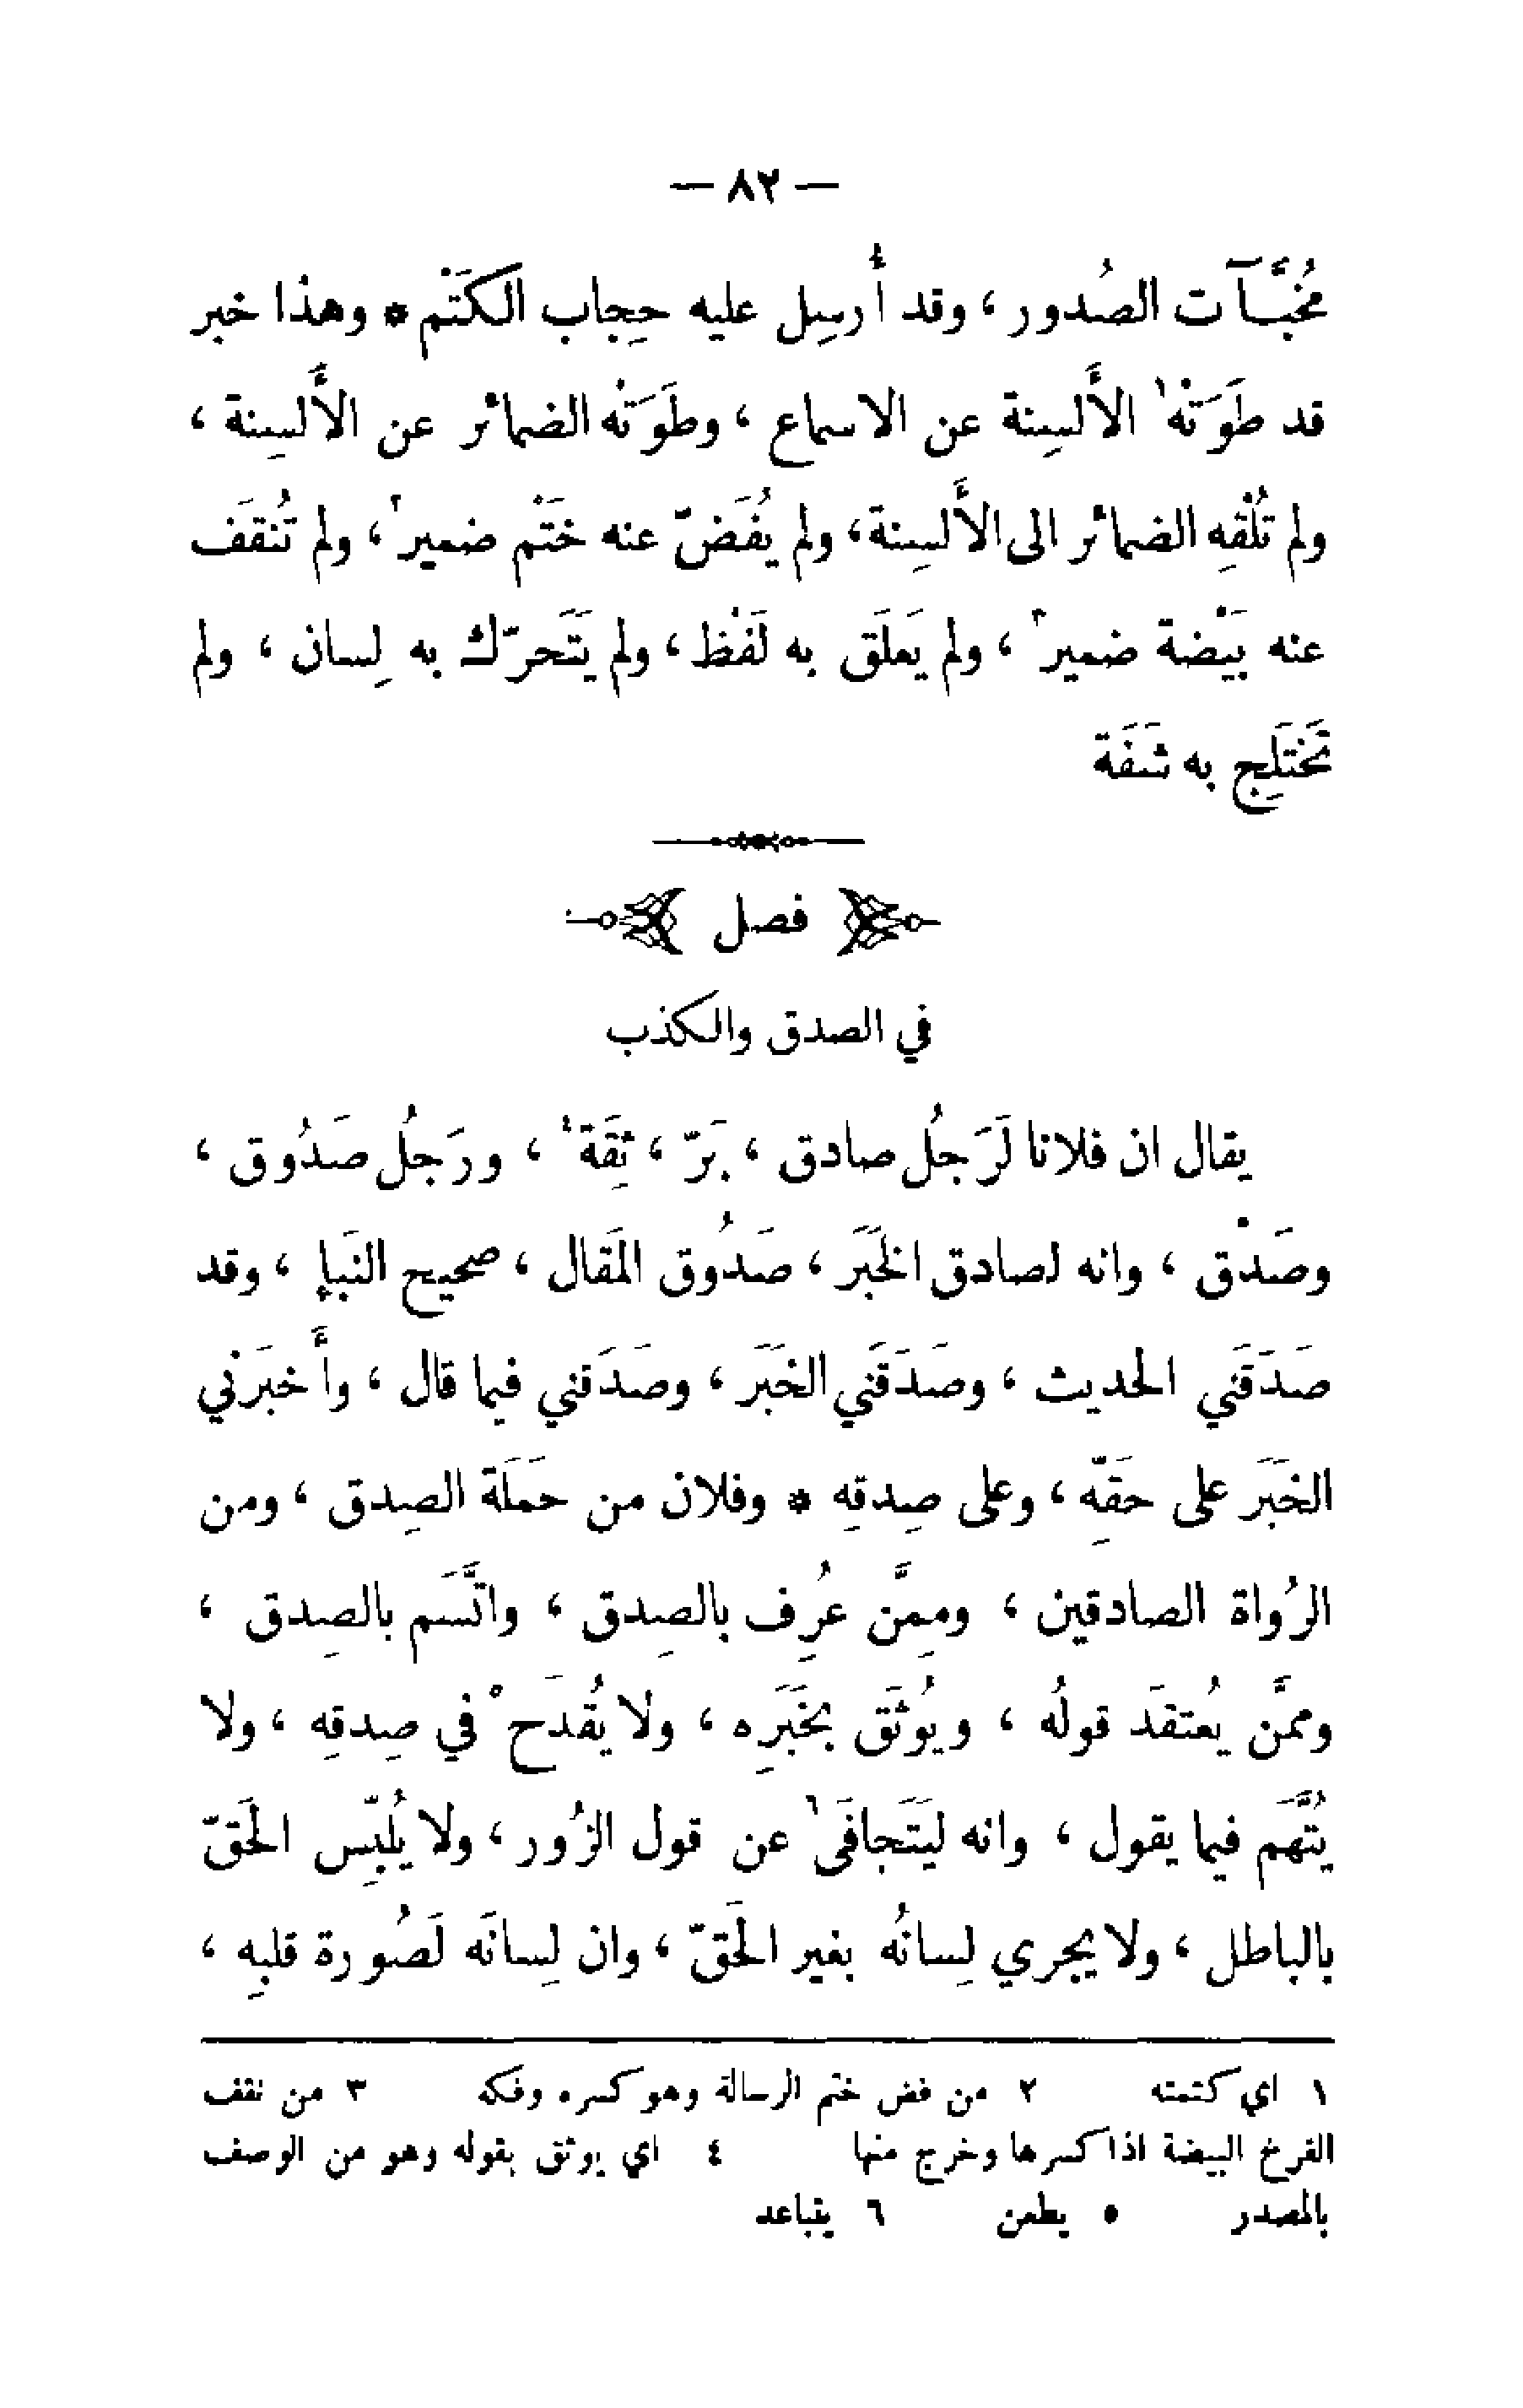 — ٨٢ —
مُخَبَّـآت الصُدور ، وقد أُرسِل عليه حِجاب الكَتْم * وهذا خبر
قد طَوَتْه١ الأَلسِنة عن الاسماع ، وطَوَتْه الضمائر عن الأَلسِنة ،
ولم تُلْقِهِ الضمائر الى الأَلسِنة ، ولم يُفَضّ عنه خَتْم ضمير٢ ، ولم تُنقَف
عنه بَيْضة ضمير٣ ، ولم يَعلَق به لَفْظ ، ولم يَتَحرّك به لِسان ، ولم
تَختَلِج به شَفَة
فصل
في الصدق والكذب
يقال ان فلانا لَرَجُل صادق ، بَرّ ، ثِقَة٤ ، ورَجُل صَدُوق ،
وصَدْق ، وانه لصادق الخَبَر ، صَدُوق المَقال ، صحيح النَبإِ ، وقد
صَدَقَني الحديث ، وصَدَقَني الخَبَر ، وصَدَقني فيما قال ، وأَخبَرَني
الخَبَر على حَقّهِ ، وعلى صِدقهِ * وفلان من حَمَلَة الصِدق ، ومن
الرُواة الصادقين ، ومِمَّن عُرِف بالصِدق ، واتَّسَم بالصِدق ،
وممَّن يُعتقَد قولُه ، ويُوثَق بخَبَرِه ، ولا يُقدَح٥ في صِدقهِ ، ولا
يُتَّهَم فيما يقول ، وانه ليَتَجافَى٦ عن قول الزُور ، ولا يُلبِّس الحَقّ
بالباطل ، ولا يجري لِسانُه بغير الحَقّ ، وان لِسانَه لَصُورة قلبِه ،
١ اي كتمته ٢ من فض ختم الرسالة وهو كسره وفكه ٣ من نقف
الفرخ البيضة اذا كسرها وخرج منها ٤ اي يوثق بقوله وهو من الوصف
بالمصدر ٥ يطعن ٦ يتباعد